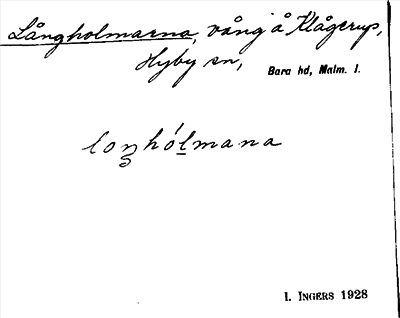 Långholmarna, vång å Klågerup,
Hyby sn, Bara hd, Malm. l.
loŋhólmana
I. INGERS 1928